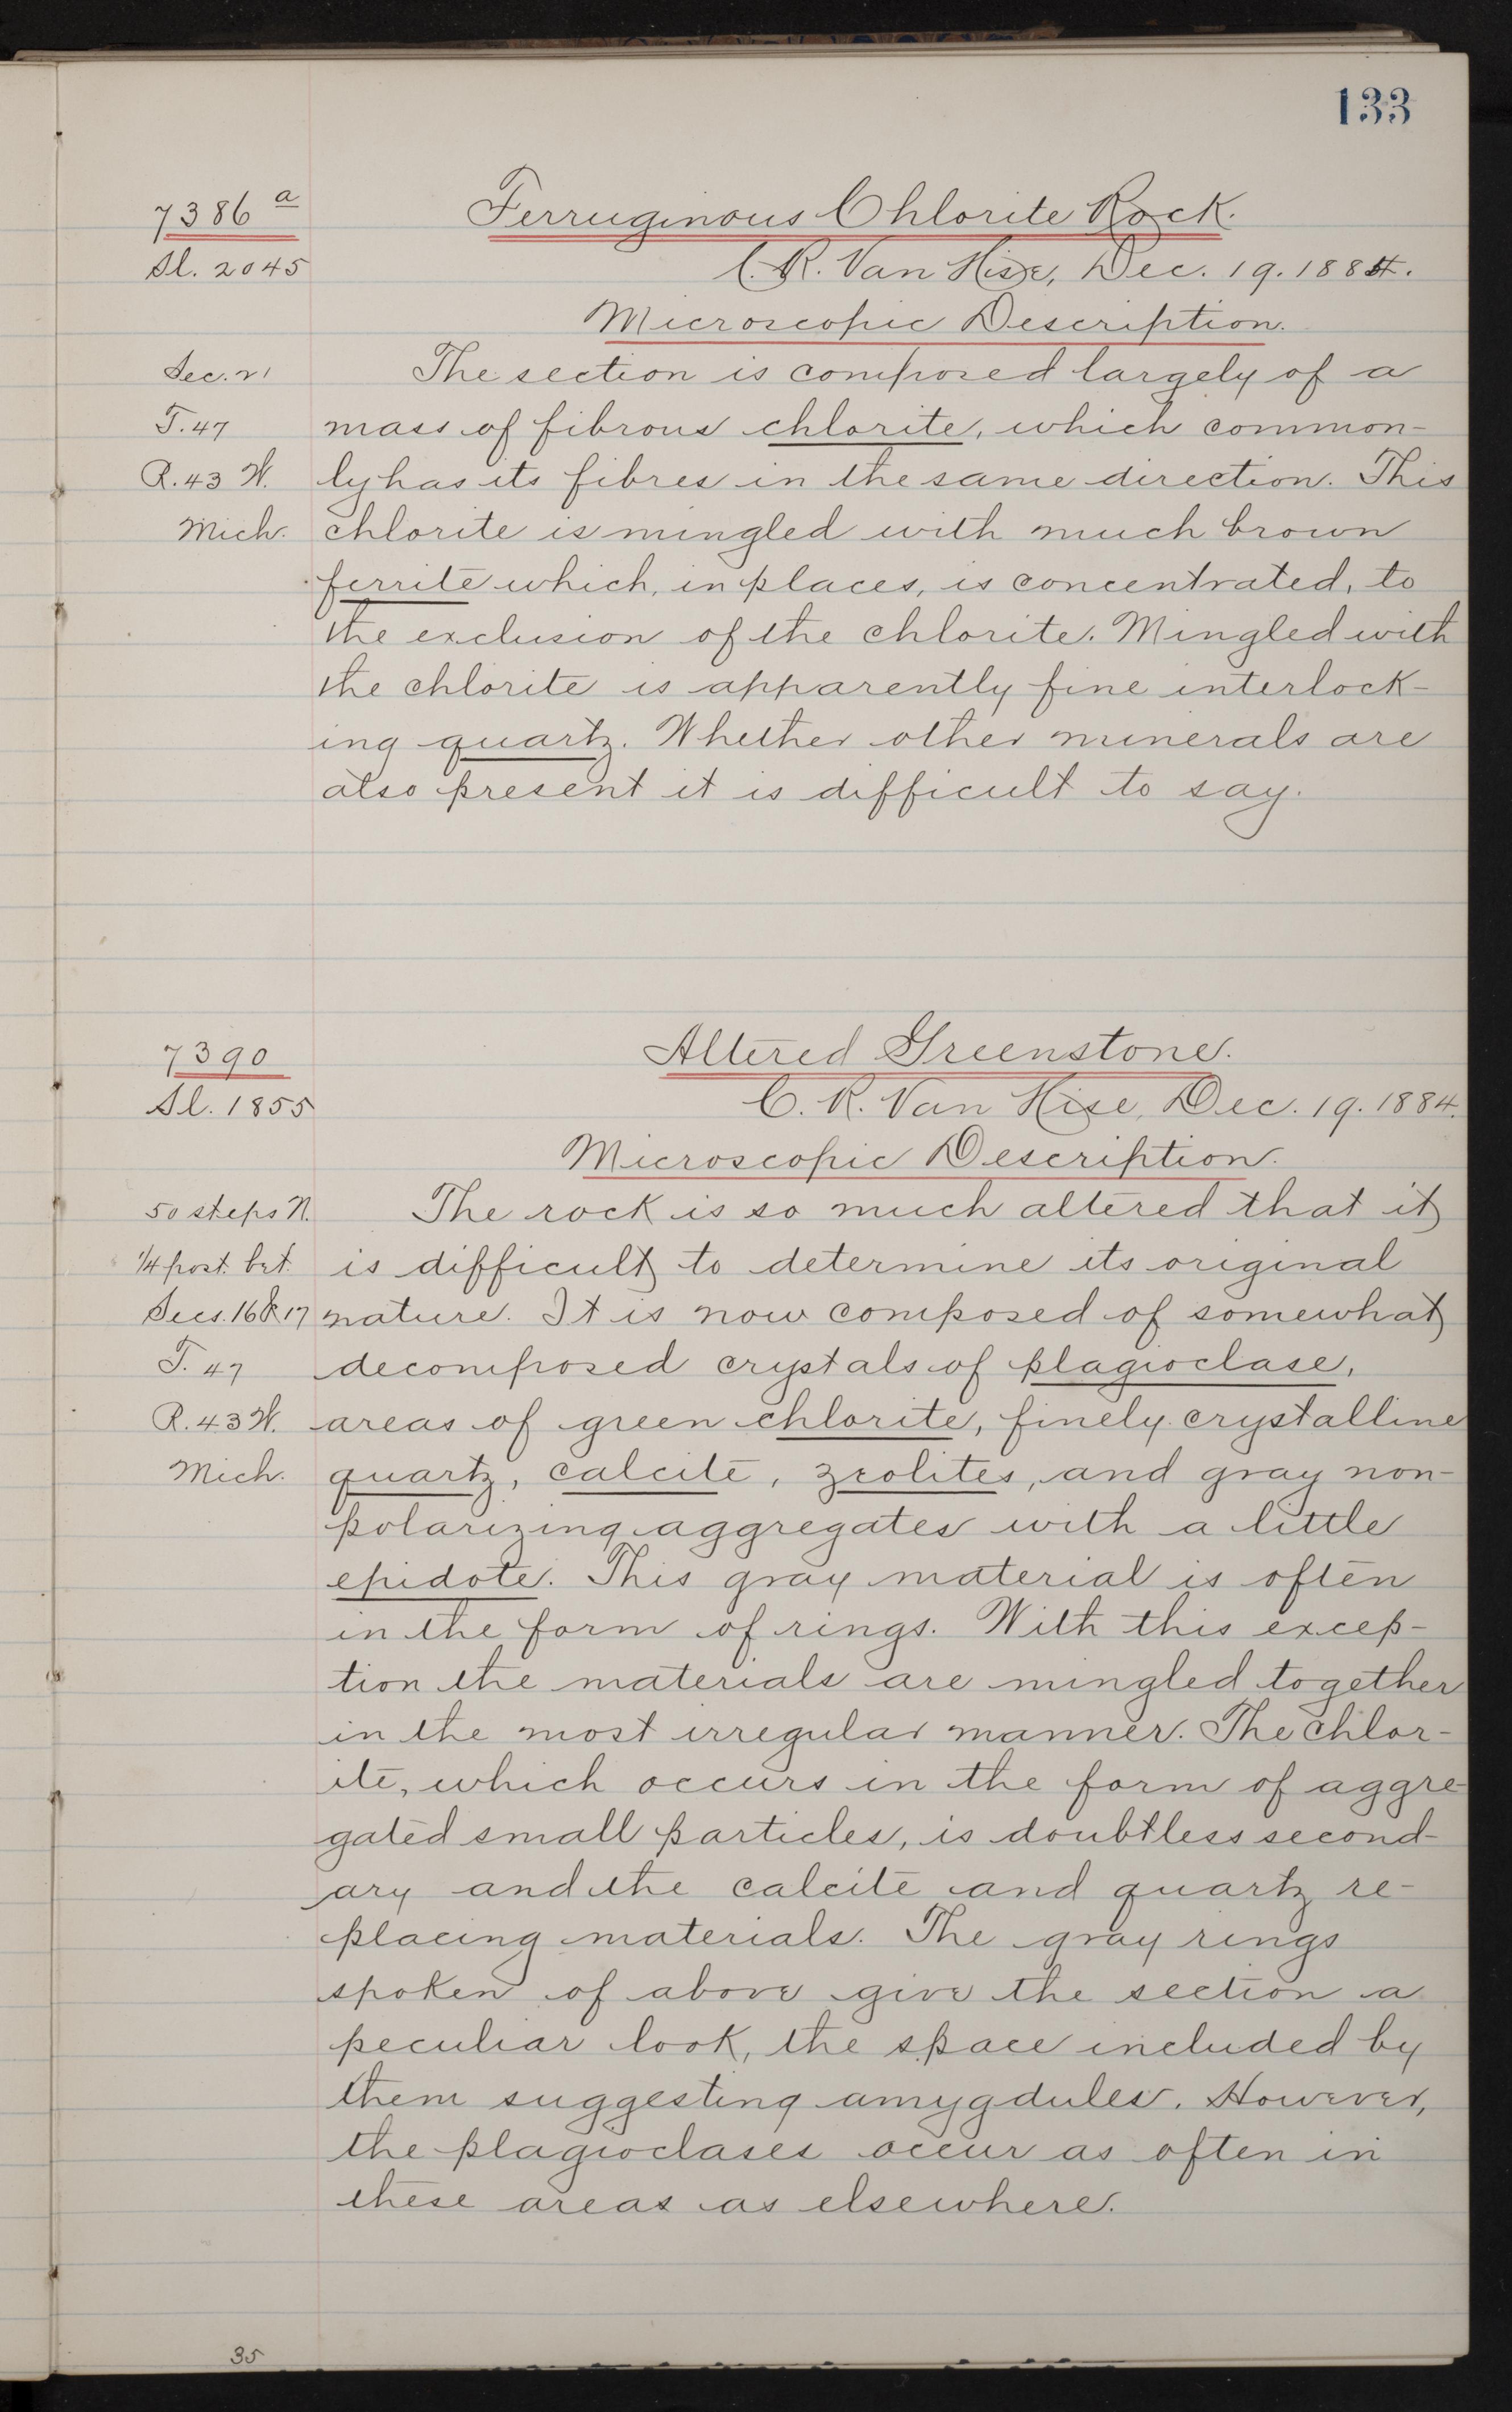 133
7386 a
Ferruginous Chlorite Rock.
Sl. 2045
C. R. Van Hise, Dec. 19. 1884.
Microscopic Description.
Sec. 21
The section is composed largely of a
T. 47
mass of fibrous chlorite, which common-
R. 43 W.
ly has its fibres in the same direction. This
Mich.
chlorite is mingled with much brown
ferrite which, in places, is concentrated, to
the exclusion of the chlorite. Mingled with
the chlorite is apparently fine interlock-
ing quartz. Whether other minerals are
also present it is difficult to say.
7390
Altered Greenstone.
Sl. 1855
C. R. Van Hise, Dec. 19. 1884.
Microscopic Description.
50 steps N.
The rock is so much altered that it
1/4 post. bet.
is difficult to determine its original
Secs. 16 & 17
nature. It is now composed of somewhat
T. 47
decomposed crystals of plagioclase,
R. 43 W.
areas of green chlorite, finely crystalline
Mich.
quartz, calcite, zeolites, and gray non-
polarizing aggregates with a little
epidote. This gray material is often
in the form of rings. With this excep-
tion the materials are mingled together
in the most irregular manner. The chlor-
ite, which occurs in the form of aggre-
gated small particles, is doubtless second-
ary and the calcite and quartz re-
placing materials. The gray rings
spoken of above give the section a
peculiar look, the space included by
them suggesting amygdules. However,
the plagioclases occur as often in
these areas as elsewhere.
35